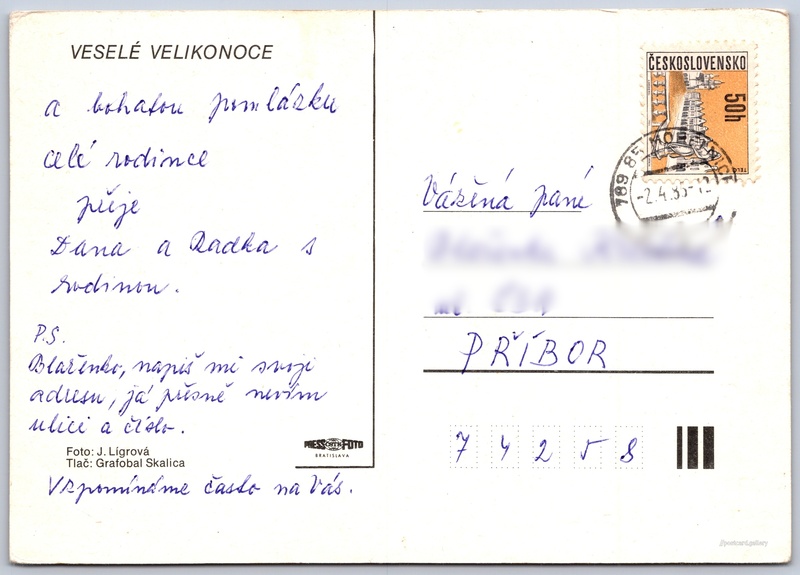 VESELÉ VELIKONOCE
a bohatou pomlázku
celé rodince
přeje
Dana a Radka s
rodinou.
P.S.
Blaženko, napiš mi svoji
adresu, já přesně nevím
ulici a číslo.
Foto: J. Lígrová
Tlač: Grafobal Skalica
Vzpomínáme často na Vás.
PRESSFOTO
BRATISLAVA
ČESKOSLOVENSKO
50h
TELČ
789 85
-2.4.85-12
Vážená paní
PŘÍBOR
7 4 2 5 8